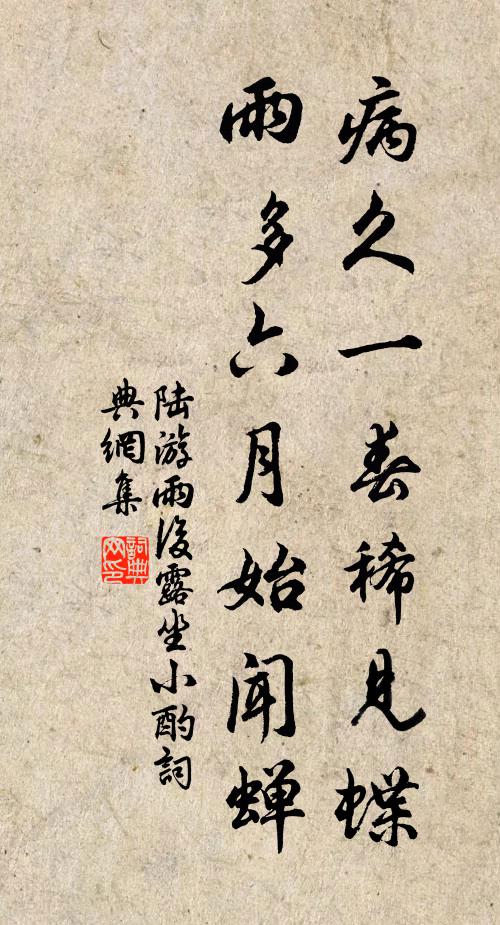 病久一春稀見蝶
雨多六月始闻蝉
陆游雨後露坐小酌詞
典網集
詞典
网印